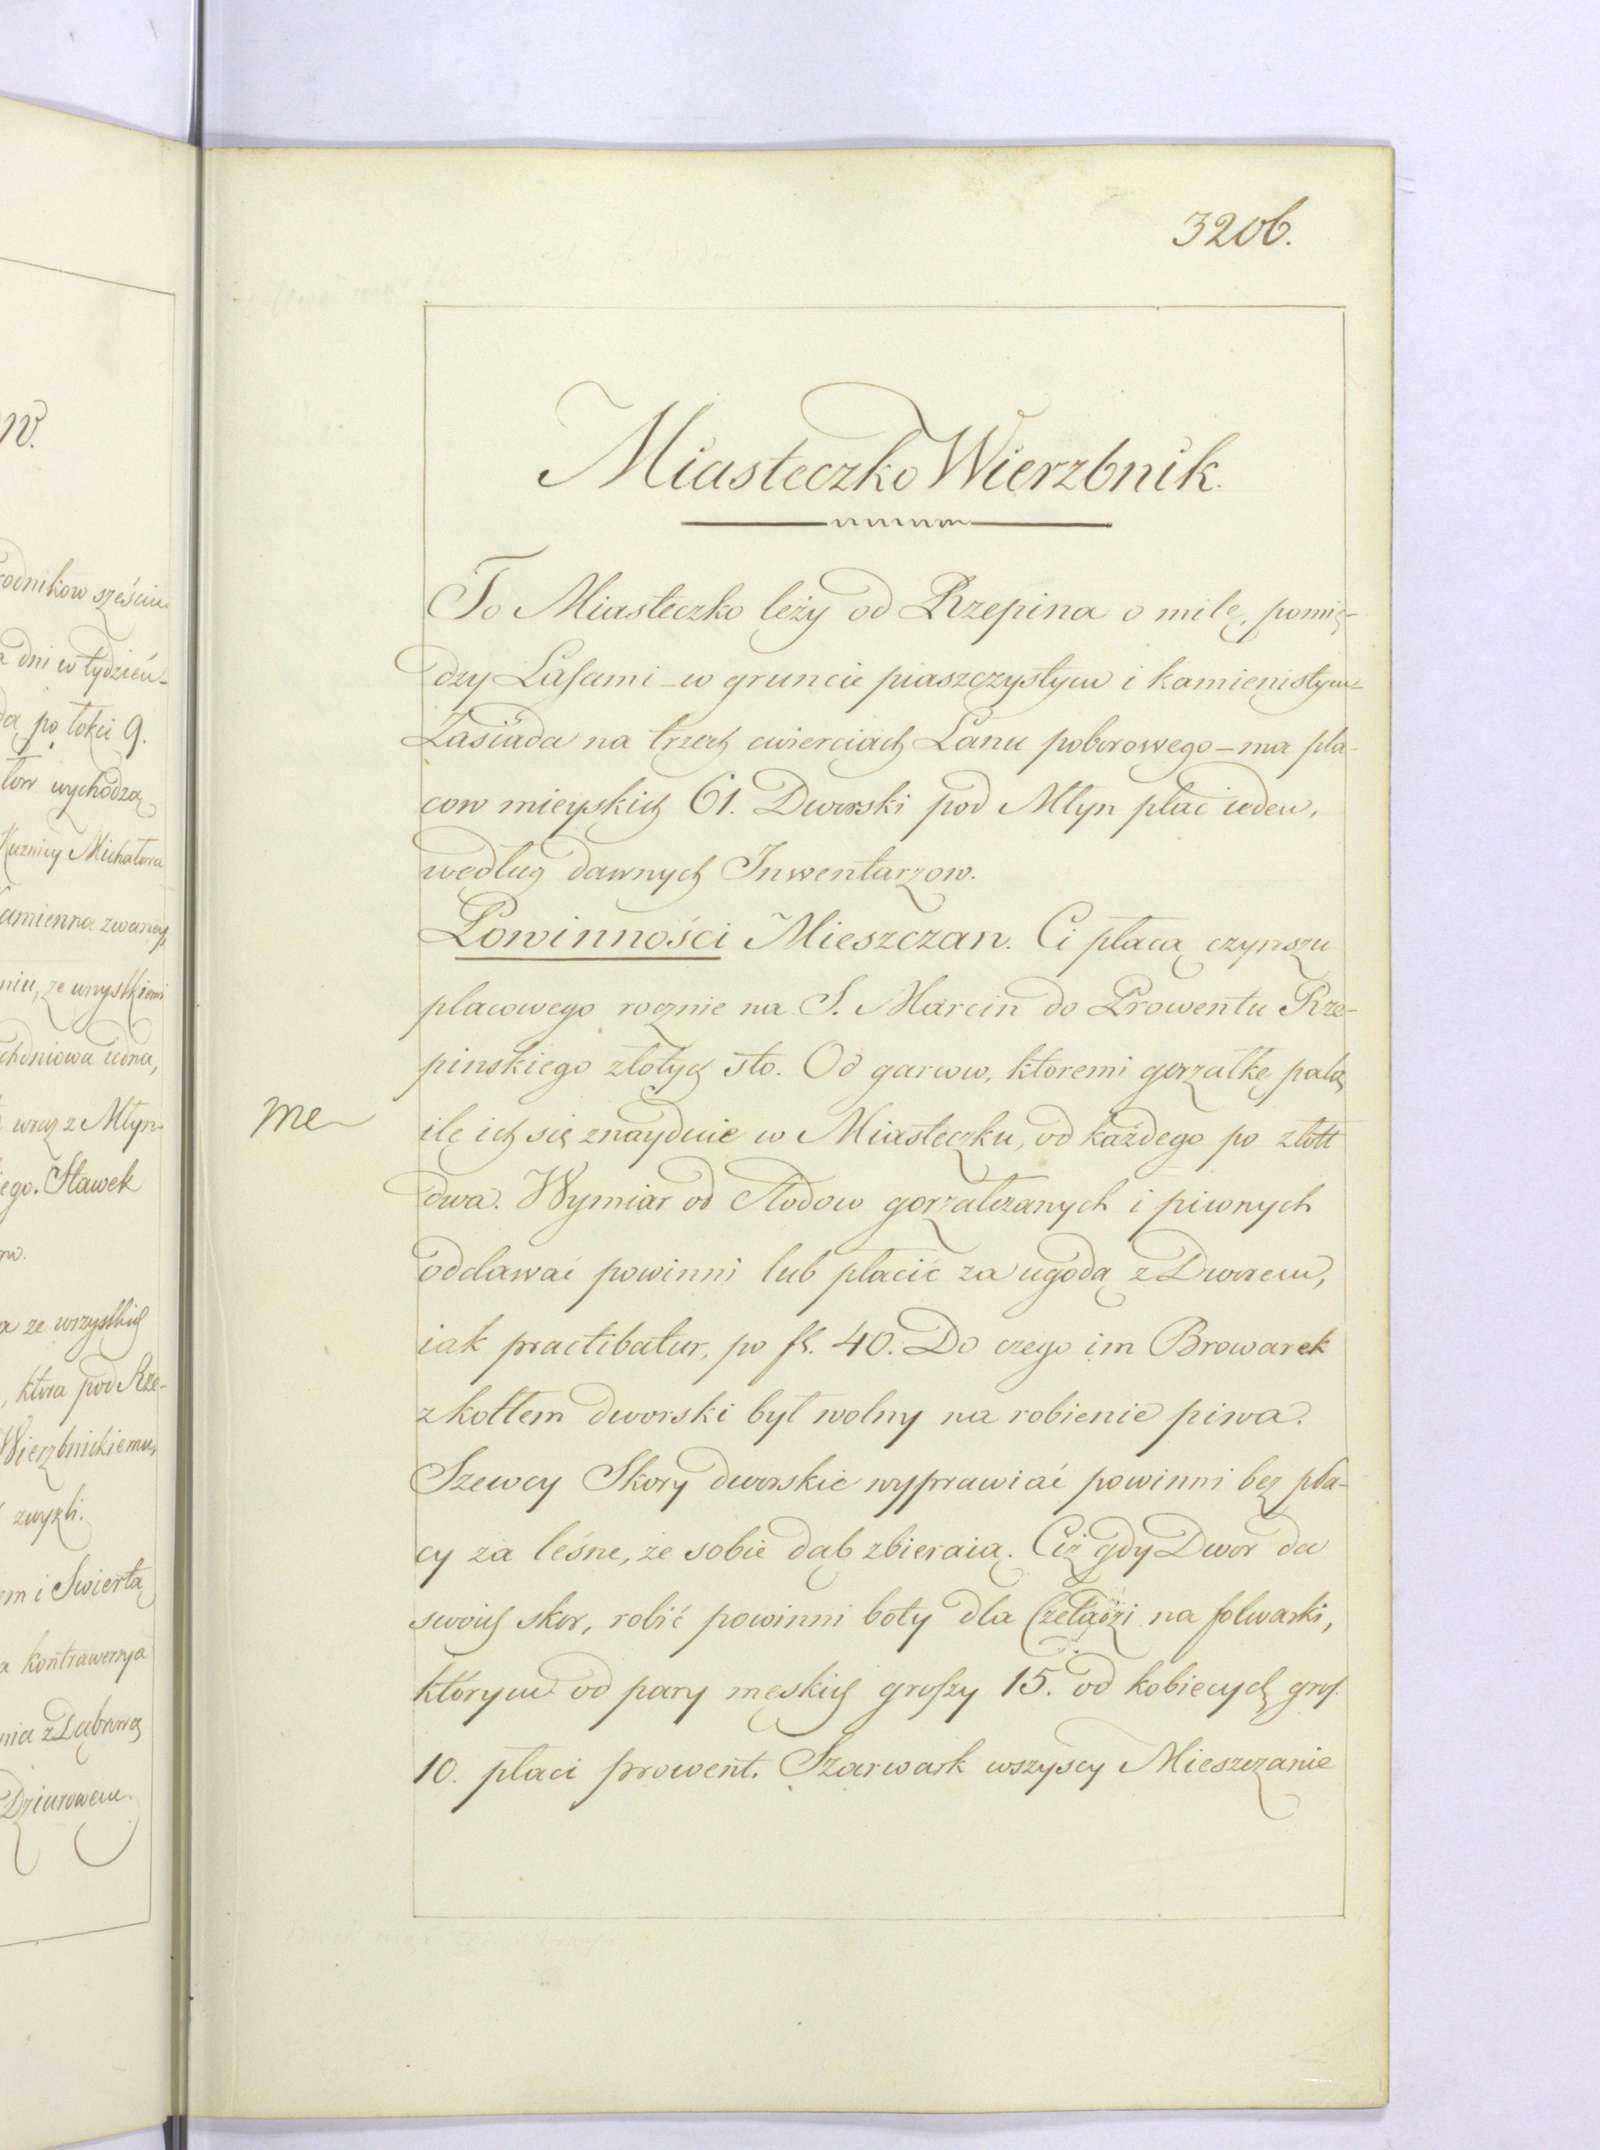 3206.
Miasteczko Wierzbnik.
To Miasteczko leży od Rzepina o milę, pomię-
dzy Lasami – w gruncie piaszczystym i kamienistym –
Zasiada na trzech cwierciach Łanu poborowego – ma pla-
cow mieyskich 61. Dworski pod Młyn plac ieden,
według dawnych Inwentarzow.
Powinności Mieszczan. Ci płacą czynszu
placowego rocznie na S. Marcin do Prowentu Rze-
pinskiego złotych sto. Od garcow, ktoremi gorzałkę palą
ile ich się znayduie w Miasteczku, od każdego po złott
dwa. Wymiar od Słodow gorzałczanych i piwnych
oddawać powinni lub płacić za ugodą z Dworem,
iak practibatur, po fl. 40. Do czego im Browarek
z kotłem dworski był wolny na robienie piwa.
Szewcy Skory dworskie wyprawiać powinni bez pła-
cy za leśne, że sobie dąb zbieraią. Ciż gdy Dwor da
swoich skor, robić powinni boty dla Czeladzi na folwarki,
którym od pary męskich groszy 15. od kobiecych gros.
10. płaci prowent. Szarwark wszyscy Mieszczanie
me
rodnikow sześciu
a dni w tydzień –
po łokci 9.
wychodzą
Kuznicy Michałowa
Kamienna zwaney,
niu, ze wszystkiemi
chdniowa iedna,
wraz z Młyn-
iego. Stawek
a ze wszystkich
, ktora pod Rze-
Wierzbnickiemu,
zwykli.
em i Swierta
a kontrawersya
nia z Dąbrową
Dziurowem.